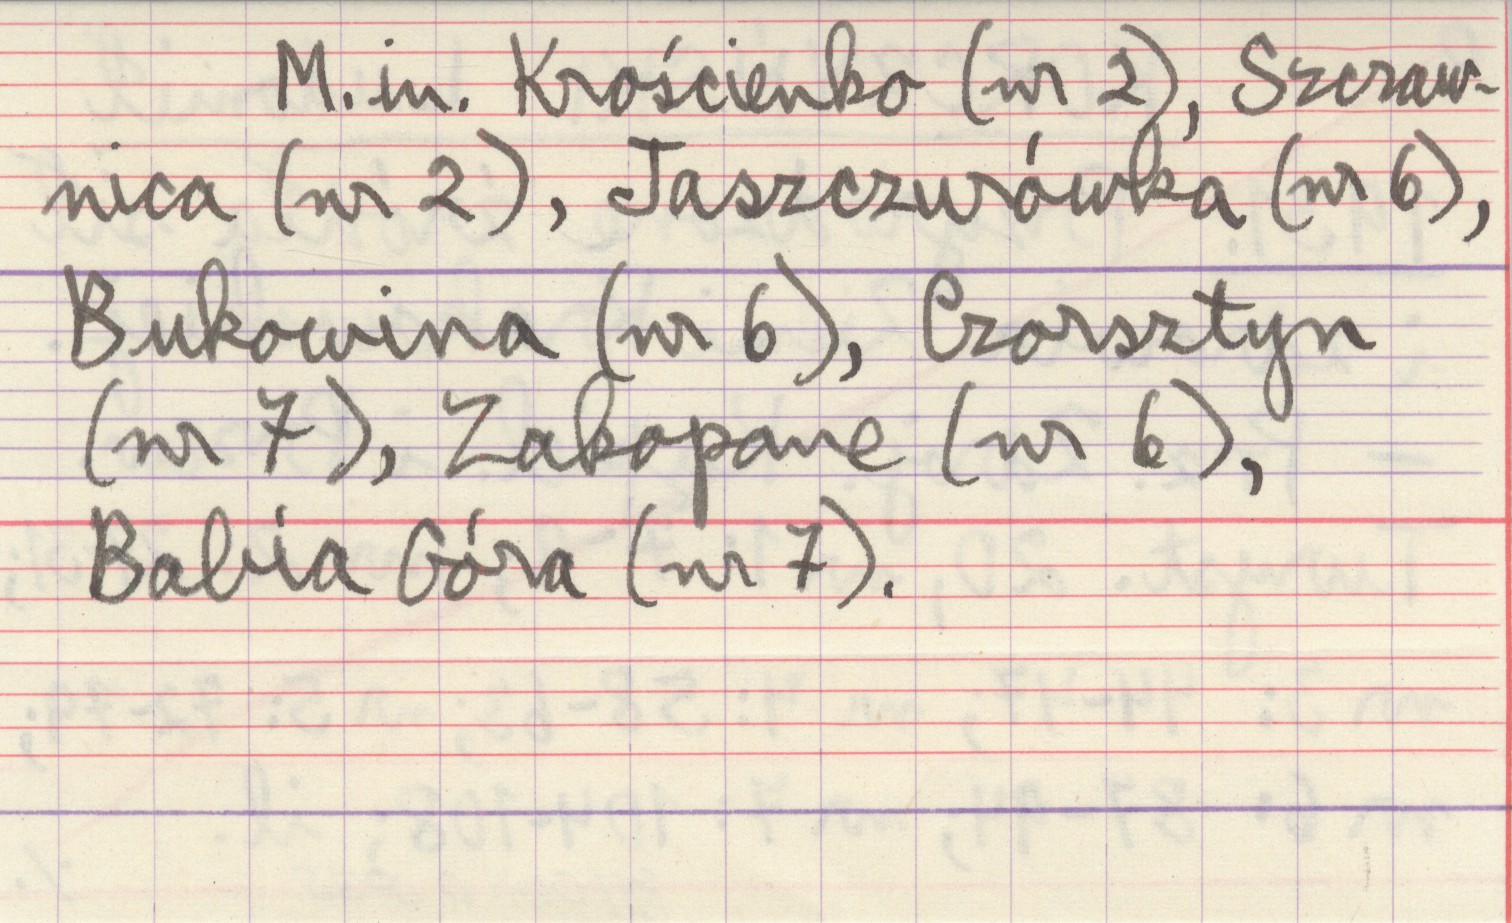 M.in. Krościenko (nr 2), Szczaw-
nica (nr 2), Jaszczurówka (nr 6),
Bukowina (nr 6), Czorsztyn
(nr 7), Zakopane (nr 6),
Babia Góra (nr 7).